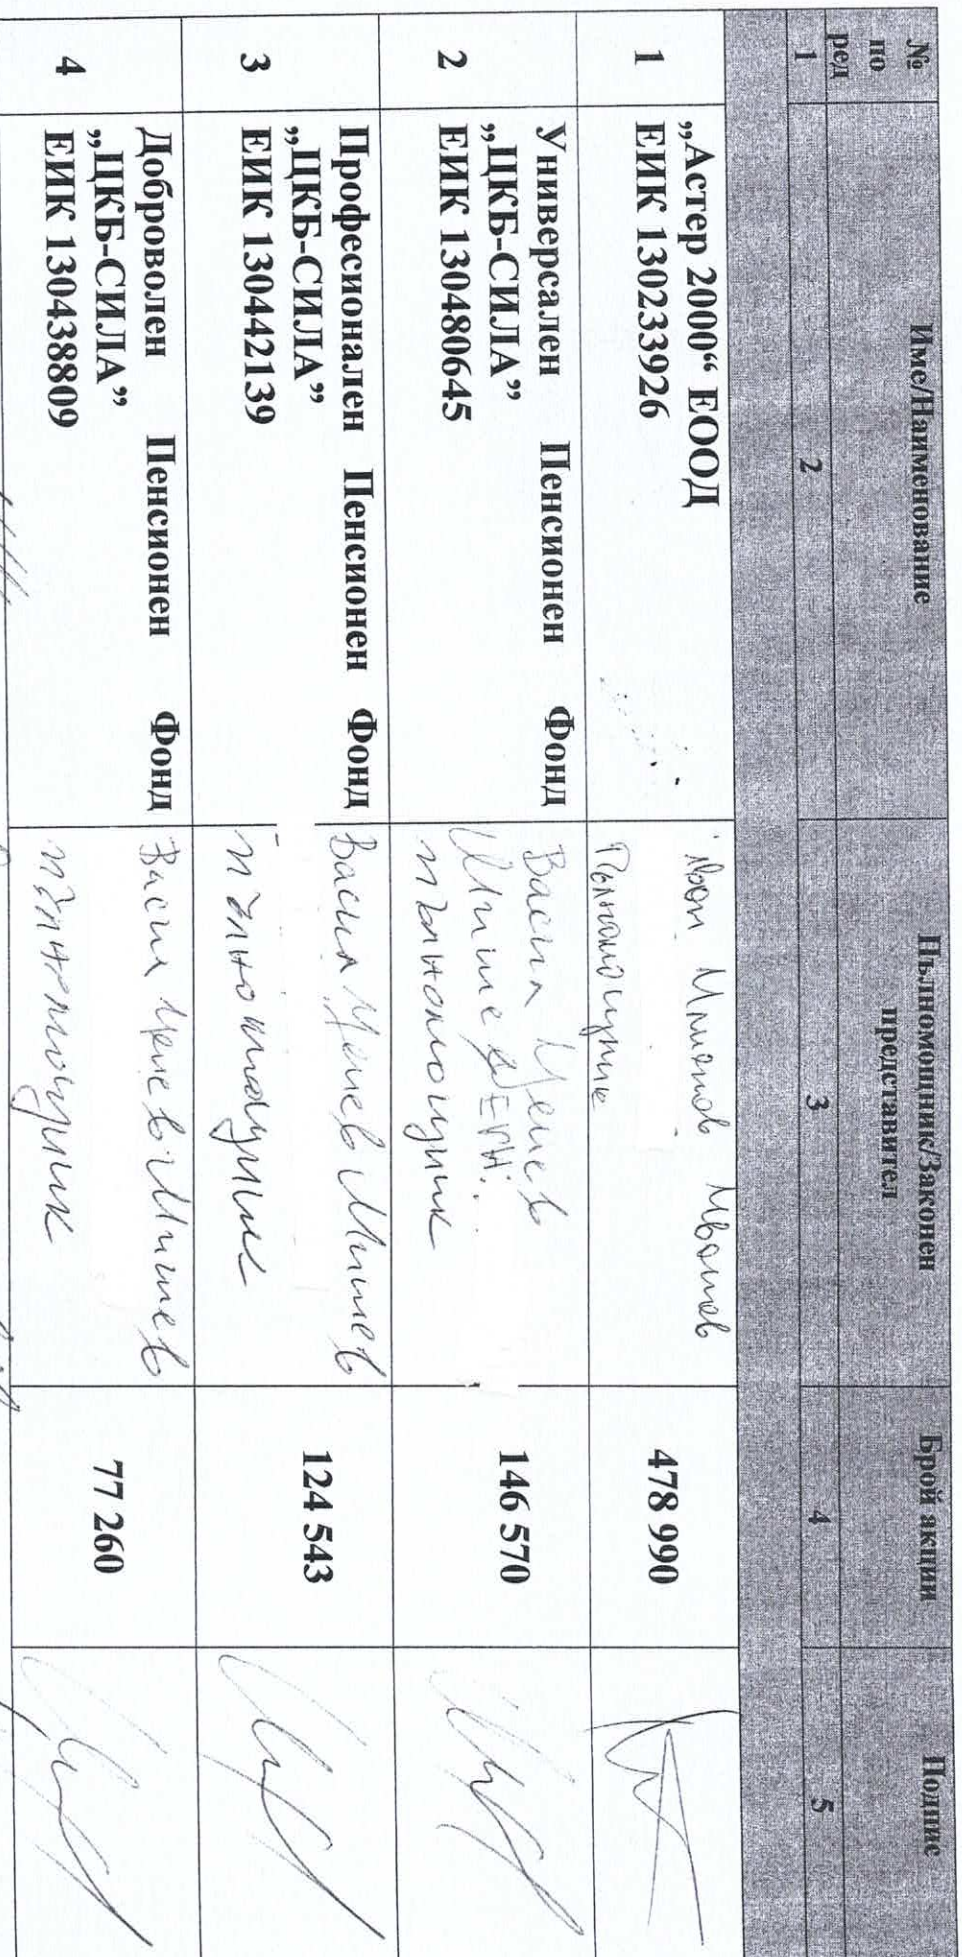 №
по
ред
Име/Наименование
Пълномощник/Законен
представител
Брой акции
Подпис
1
2
3
4
5
1
„Астер 2000“ ЕООД
ЕИК 130233926
Иванов
Пълномощник
478 990
2
Универсален Пенсионен Фонд
„ЦКБ-СИЛА”
ЕИК 130480645
Васил Ценев
Мишев
пълномощник
146 570
3
Професионален Пенсионен Фонд
„ЦКБ-СИЛА”
ЕИК 130442139
Васил Ценев Мишев
пълномощник
124 543
4
Доброволен Пенсионен Фонд
„ЦКБ-СИЛА”
ЕИК 130438809
Васил Ценев Мишев
пълномощник
77 260